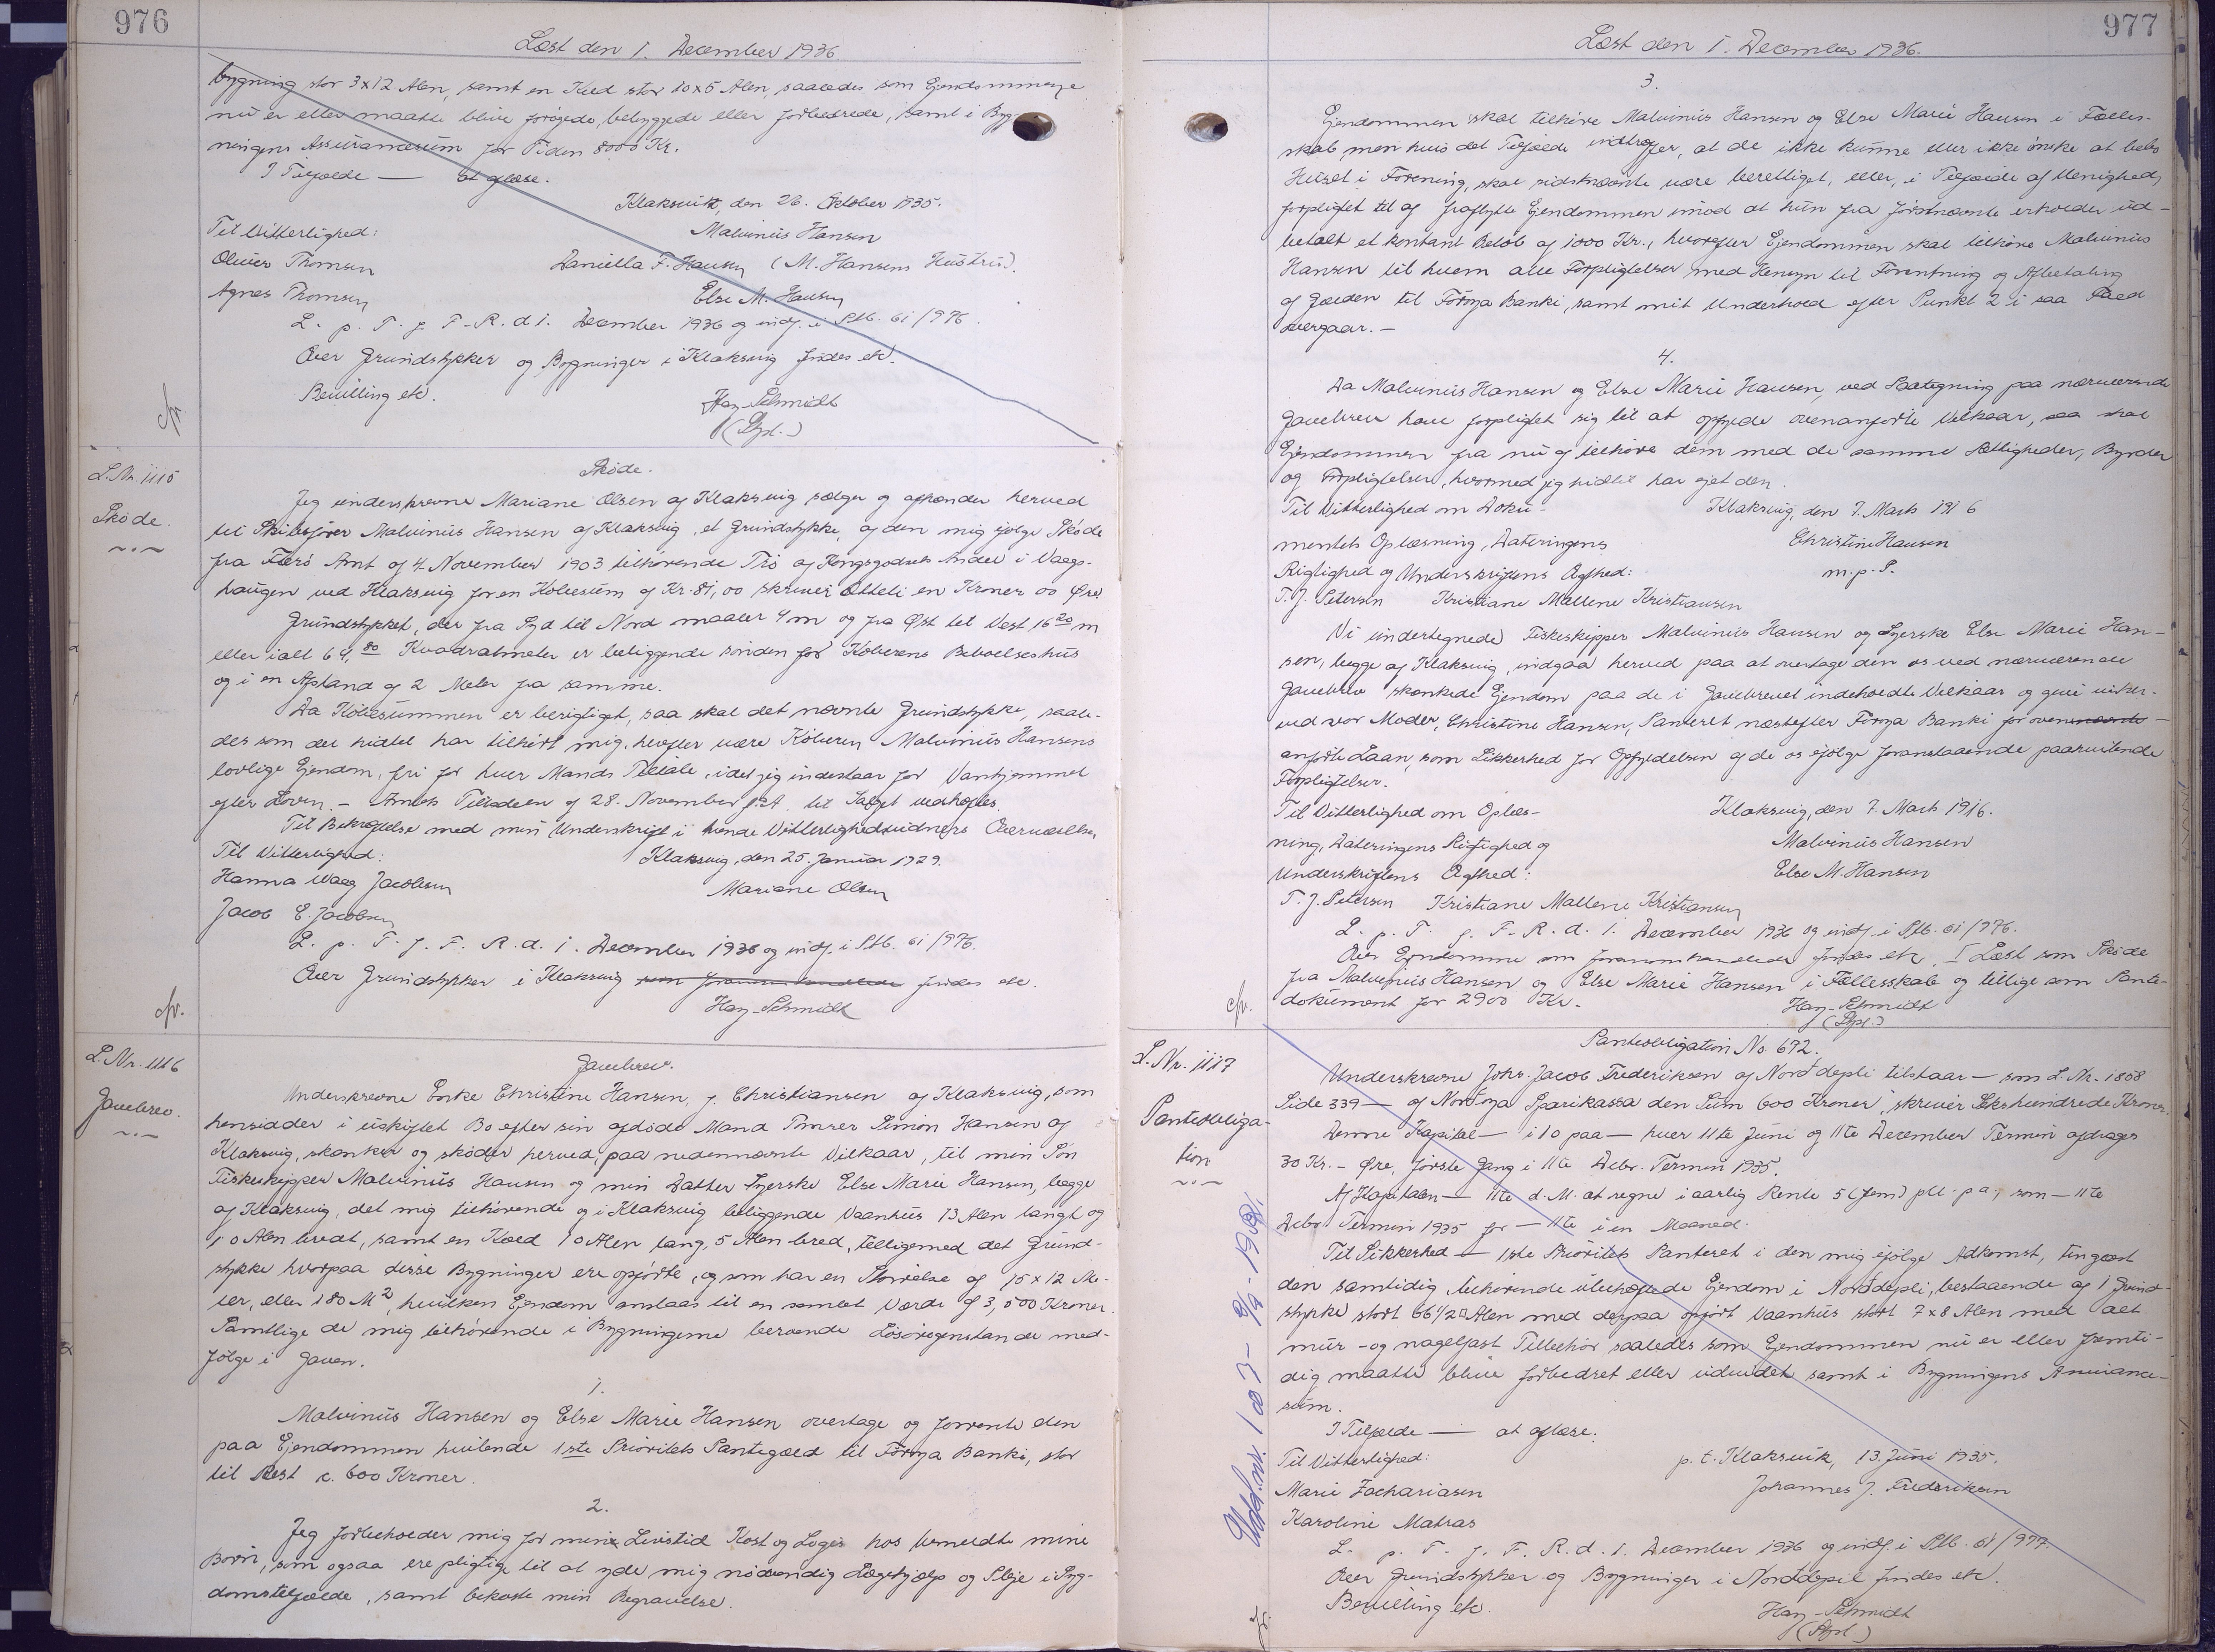 976
Læst den 1. December 1936
bygning stor 3x12 Alen, samt en Kæld stor 10x5 Alen, saaledes som Ejendommene
nu er eller maatte blive forøgede, bebyggede eller forbedrede, samt i Byg-
ningens Assurancesum for Tiden 8000 Kr.
I Tilfælde — at aflæse.
Klaksvik, den 26. Oktober 1935.
Til Vitterlighed: Malvinus Hansen
Oliver Thomsen Daniella F. Hansen (M. Hansens Hustru).
Agnes Thomsen Else M. Hansen
L. p. T. f. F. R. d. 1. December 1936 og indf. i Ptb. 61/976.
Over Grundstykker og Bygninger i Klaksvig findes etc.
Bevilling etc. Hay-Schmidt
(Dpl.)
cfr.
L. Nr. 1115
Skøde.
Skøde.
Jeg underskrevne Mariane Olsen af Klaksvig sælger og afhænder herved
til Skibsfører Malvinus Hansen af Klaksvig, et Grundstykke, af den mig ifølge Skøde
fra Færø Amt af 4. November 1903 tilhørende Trø af Kongsgodsets Andel i Vaags-
haugen ved Klaksvig for en Købesum af Kr. 81,00 skriver Otteti en Kroner 00 Øre.
Grundstykket, der fra Syd til Nord maaler 4 m og fra Øst til Vest 16 20 m
eller ialt 64,80 Kvadratmeter er beliggende sønden for Køberens Beboelseshus
og i en Afstand af 2 Meter fra samme.
Da Købesummen er berigtiget, saa skal det nævnte Grundstykke, saale-
des som det hidtil har tilhørt mig, herefter være Køberen Malvinus Hansens
lovlige Ejendom, fri for hver Mands Tiltale, idet jeg indestaar for Vanhjemmel
efter Loven. — Amtets Tilladelsen af 28. November f.A. til Salget vedhæftes.
Til Bekræftelse med min Underskrift i tvende Vitterlighedsvidners Overværelse.
Til Vitterlighed: Klaksvig, den 25. Januar 1929.
Hanna Waag Jacobsen Mariane Olsen
Jacob E. Jacobsen
L. p. T. f. F. R. d. 1. December 1936 og indf. i Ptb. 61/976.
Over Grundstykker i Klaksvig som foranommhandlede findes etc.
Hay-Schmidt
cfr.
L. Nr. 1116
Gavebrev.
Gavebrev.
Underskrevne Enke Christine Hansen, f. Christiansen af Klaksvig, som
hensidder i uskiftet Bo efter sin afdøde Mand Tømrer Simon Hansen af
Klaksvig, skænker og skøder herved, paa nedennævnte Vilkaar, til min Søn
Fiskeskipper Malvinus Hansen og min Datter Syerske Else Marie Hansen, begge
af Klaksvig, det mig tilhørende og i Klaksvig beliggende Vaanhus 13 Alen langt og
10 Alen bredt, samt en Kæld 10 Alen lang, 5 Alen bred, tilligemed det Grund-
stykke hvorpaa disse Bygninger ere opførte, og som har en Størrelse af 15 x 12 Me-
ter, eller 180 M², hvilken Ejendom anslaas til en samlet Værdi af 3,500 Kroner.
Samtlige de mig tilhørende i Bygningerne beroende Løsøregenstande med-
følge i Gaven.
1.
Malvinus Hansen og Else Marie Hansen overtage og forrente den
paa Ejendommen hvilende 1ste Prioritets Pantegæld til Føroya Banki, stor
til Rest c. 600 Kroner.
2.
Jeg forbeholder mig for mine Livstid Kost og Logis hos bemeldte mine
Børn, som ogsaa ere pligtige til at yde mig nødvendig Lægehjælp og Pleje i Syg-
domstilfælde, samt bekoste min Begravelse.
977
Læst den 1. December 1936.
3.
Ejendommen skal tilhøre Malvinus Hansen og Else Marie Hansen i Fælles-
skab, men hvis det Tilfælde indtræffer, at de ikke kunne eller ikke ønske at bebo
Huset i Forening, skal sidstnævnte være berettiget, eller, i Tilfælde af Uenighed,
forpligtet til af fraflytte Ejendommen imod at hun fra førstnævnte erholder ud-
betalt et kontant Beløb af 1000 Kr., hvorefter Ejendommen skal tilhøre Malvinus
Hansen til hvem alle Forpligtelser med Hensyn til Forrentning og Afbetaling
af Gælden til Føroya Banki, samt mit Underhold efter Punkt 2 i saa Fald
overgaar. —
4.
Da Malvinus Hansen og Else Marie Hansen, ved Paategning paa nærværende
Gavebrev have forpligtet sig til at opfylde ovenanførte Vilkaar, saa skal
Ejendommen fra nu af tilhøre dem med de samme Rettigheder, Byrder
og Forpligtelser, hvormed jeg hidtil har ejet den.
Til Vitterlighed om Doku- Klaksvig, den 7. Marts 1916
mentets Oplæsning, Dateringens Christine Hansen
Rigtighed og Underskriftens Ægthed: m.p.P.
T. J. Petersen Kristiane Mallene Kristiansen
Vi undertegnede Fiskeskipper Malvinus Hansen og Syerske Else Marie Han-
sen, begge af Klaksvig, indgaa herved paa at overtage den os ved nærværende
Gavebrev skænkede Ejendom paa de i Gavebrevet indeholdte Vilkaar og give sikker-
ved vor Moder, Christine Hansen, Panteret næstefter Føroya Banki for ovennævnte
anførte Laan, som Sikkerhed for Opfyldelsen af de os ifølge foranstaaende paahvilende
Forpligtelser.
Til Vitterlighed om Oplæs- Klaksvig, den 7. Marts 1916.
ning, Dateringens Rigtighed og Malvinus Hansen
Underskriftens Ægthed: Else M. Hansen
T. J. Petersen Kristiane Mallene Kristiansen
L. p. T. f. F. R. d. 1. December 1936 og indf. i Ptb. 61/976.
Over Ejendomme som foranommhandlede findes etc. I Læst som Skøde
fra Malvinus Hansen og Else Marie Hansen i Fællesskab og tillige som Pante-
dokument for 2900 Kr. Hay-Schmidt
(Dpl.)
cfr.
L. Nr. 1117
Panteobliga-
tion
Panteobligation No. 672.
Underskrevne Johs. Jacob Frederiksen af Norddepli tilstaar — som L. Nr. 1858
Side 339 — af Nordoya Sparikassa den Sum 600 Kroner, skriver Sekshundrede Kroner.
Denne Kapital — i 10 paa — hver 11te Juni og 11te December Termin afdrages
30 Kr. - Øre, første Gang i 11te Decbr. Termin 1935.
Af Kapitalen — 11te d. M. at regne i aarlig Rente 5 (fem) pCt. p.a., som — 11te
Decbr. Termin 1935 for — 11te i en Maaned.
Til Sikkerhed — 1ste Prioritets Panteret i den mig ifølge Adkomst, tinglæst
den samtidig, tilhørende ubehæftede Ejendom i Norddepli, bestaaende af 1 Grund-
stykke stort 66 1/2 □ Alen med derpaa opført Vaanhus stort 7 x 8 Alen med alt
mur- og nagelfast Tilbehør saaledes som Ejendommen nu er eller fremti-
dig maatte blive forbedret eller udvidet samt i Bygningens Assurance-
sum.
I Tilfælde — at aflæse.
Til Vitterlighed: p. t. Klaksvik, 13. Juni 1935.
Marie Zachariasen Johannes J. Frederiksen
Karoline Matras
L. p. T. f. F. R. d. 1. December 1936 og indf. i Ptb. 61/977.
Over Grundstykker og Bygninger i Norddepil findes etc.
Bevilling etc. Hay-Schmidt
(Dpl.)